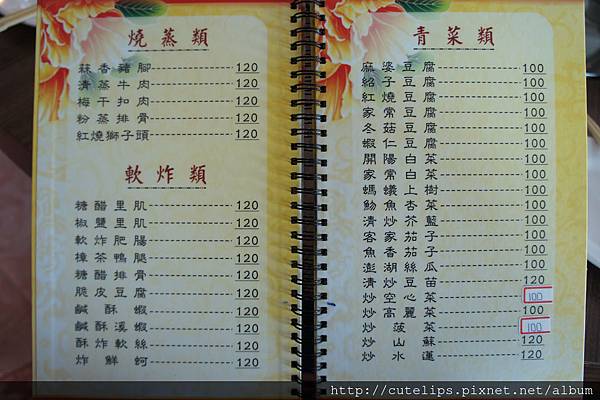 燒蒸類
蒜香豬腳 120
清蒸牛肉 120
梅干扣肉 120
粉蒸排骨 120
紅燒獅子頭 120
軟炸類
糖醋里肌 120
椒鹽里肌 120
軟炸肥腸 120
樟茶鴨腿 120
糖醋排骨 120
脆皮豆腐 120
鹹酥蝦 120
鹹酥溪蝦 120
酥炸軟絲 120
炸鮮蚵 120
青菜類
麻婆豆腐 100
紹子豆腐 100
紅燒豆腐 100
家常豆腐 100
冬菇豆腐 100
蝦仁豆腐 100
開陽白菜 100
家常白菜 100
螞蟻上樹 100
魩魚杏菜 100
清炒芥藍 100
客家茄子 100
魚香茄子 100
澎湖絲瓜 100
清炒豆苗 120
炒空心菜 100
炒高麗菜 100
炒菠菜 100
炒山蘇 120
炒水蓮 120
http://cutelips.pixnet.net/album